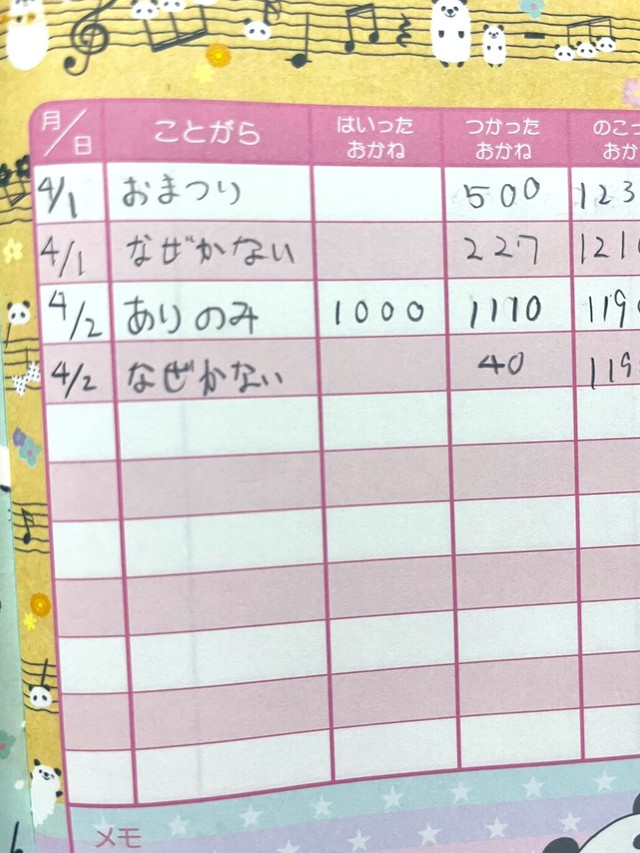 月/日 ことがら はいったおかね つかったおかね のこっ おか
4/1 おまつり 500 123
4/1 なぜかない 227 121
4/2 ありのみ 1000 1170 119
4/2 なぜかない 40 119
メモ